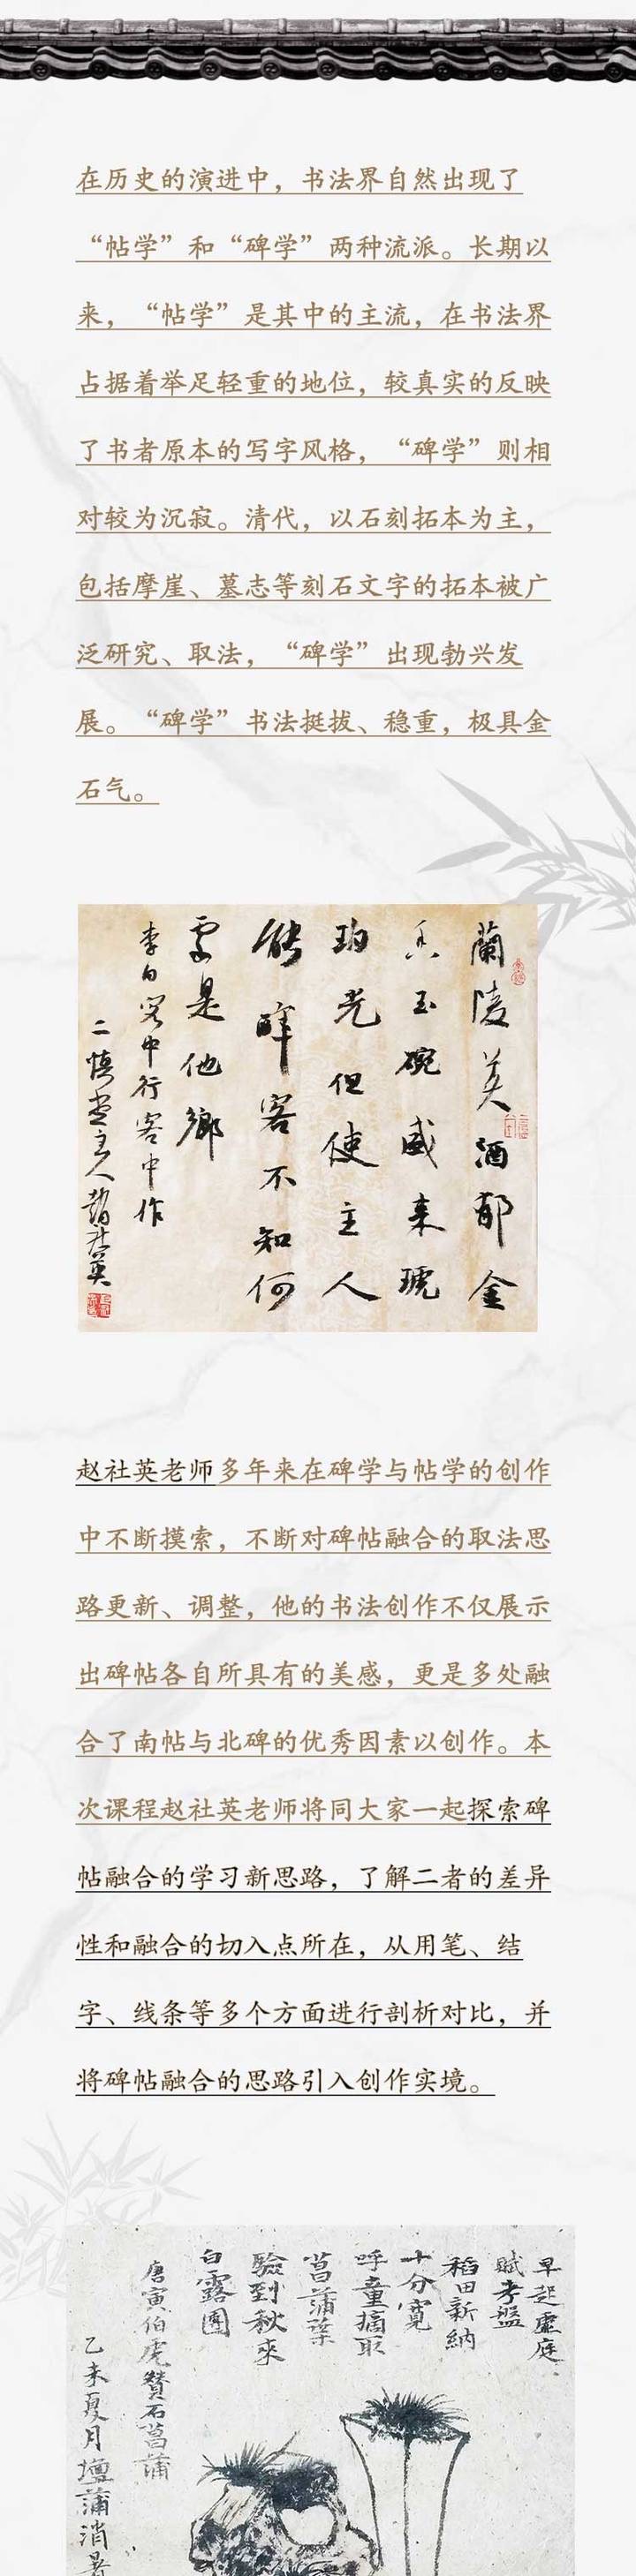 在历史的演进中，书法界自然出现了
“帖学”和“碑学”两种流派。长期以
来，“帖学”是其中的主流，在书法界
占据着举足轻重的地位，较真实的反映
了书者原本的写字风格，“碑学”则相
对较为沉寂。清代，以石刻拓本为主，
包括摩崖、墓志等刻石文字的拓本被广
泛研究、取法，“碑学”出现勃兴发
展。“碑学”书法挺拔、稳重，极具金
石气。
蘭陵美酒郁金
香玉碗盛来琥
珀光但使主人
能醉客不知何
处是他鄉
李白客中行客中作
二慎堂主人趙社英
赵社英老师多年来在碑学与帖学的创作
中不断摸索，不断对碑帖融合的取法思
路更新、调整，他的书法创作不仅展示
出碑帖各自所具有的美感，更是多处融
合了南帖与北碑的优秀因素以创作。本
次课程赵社英老师将同大家一起探索碑
帖融合的学习新思路，了解二者的差异
性和融合的切入点所在，从用笔、结
字、线条等多个方面进行剖析对比，并
将碑帖融合的思路引入创作实境。
早起虚庭
賦考盤
稻田新納
十分寬
呼童摘取
菖蒲葉
驗到秋來
白露團
唐寅伯虎贊石菖蒲
乙未夏月壇蒲消暑